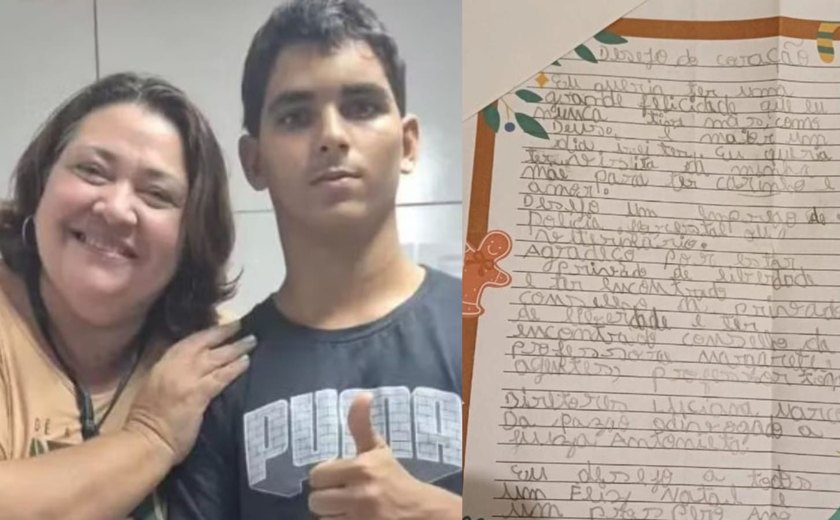 PUMA
DE A
Desejo do coração
Eu queria ter uma
grande felicidade que eu
nunca tive mas como
Deus é maior um
dia vai ter. Eu queria
ter visita da minha
mãe para ter carinho e
amor.
Desejo um emprego de
Policia florestal ou
veterinario.
Agradeço por estar
privado de liberdade
e ter encontrado
conselho
de liberdade e ter
encontrado conselho da
professora
agentes professor
Diretores
Da
juiza Antonieta
Eu desejo a todos
um Feliz Natal e
um prospero Ano